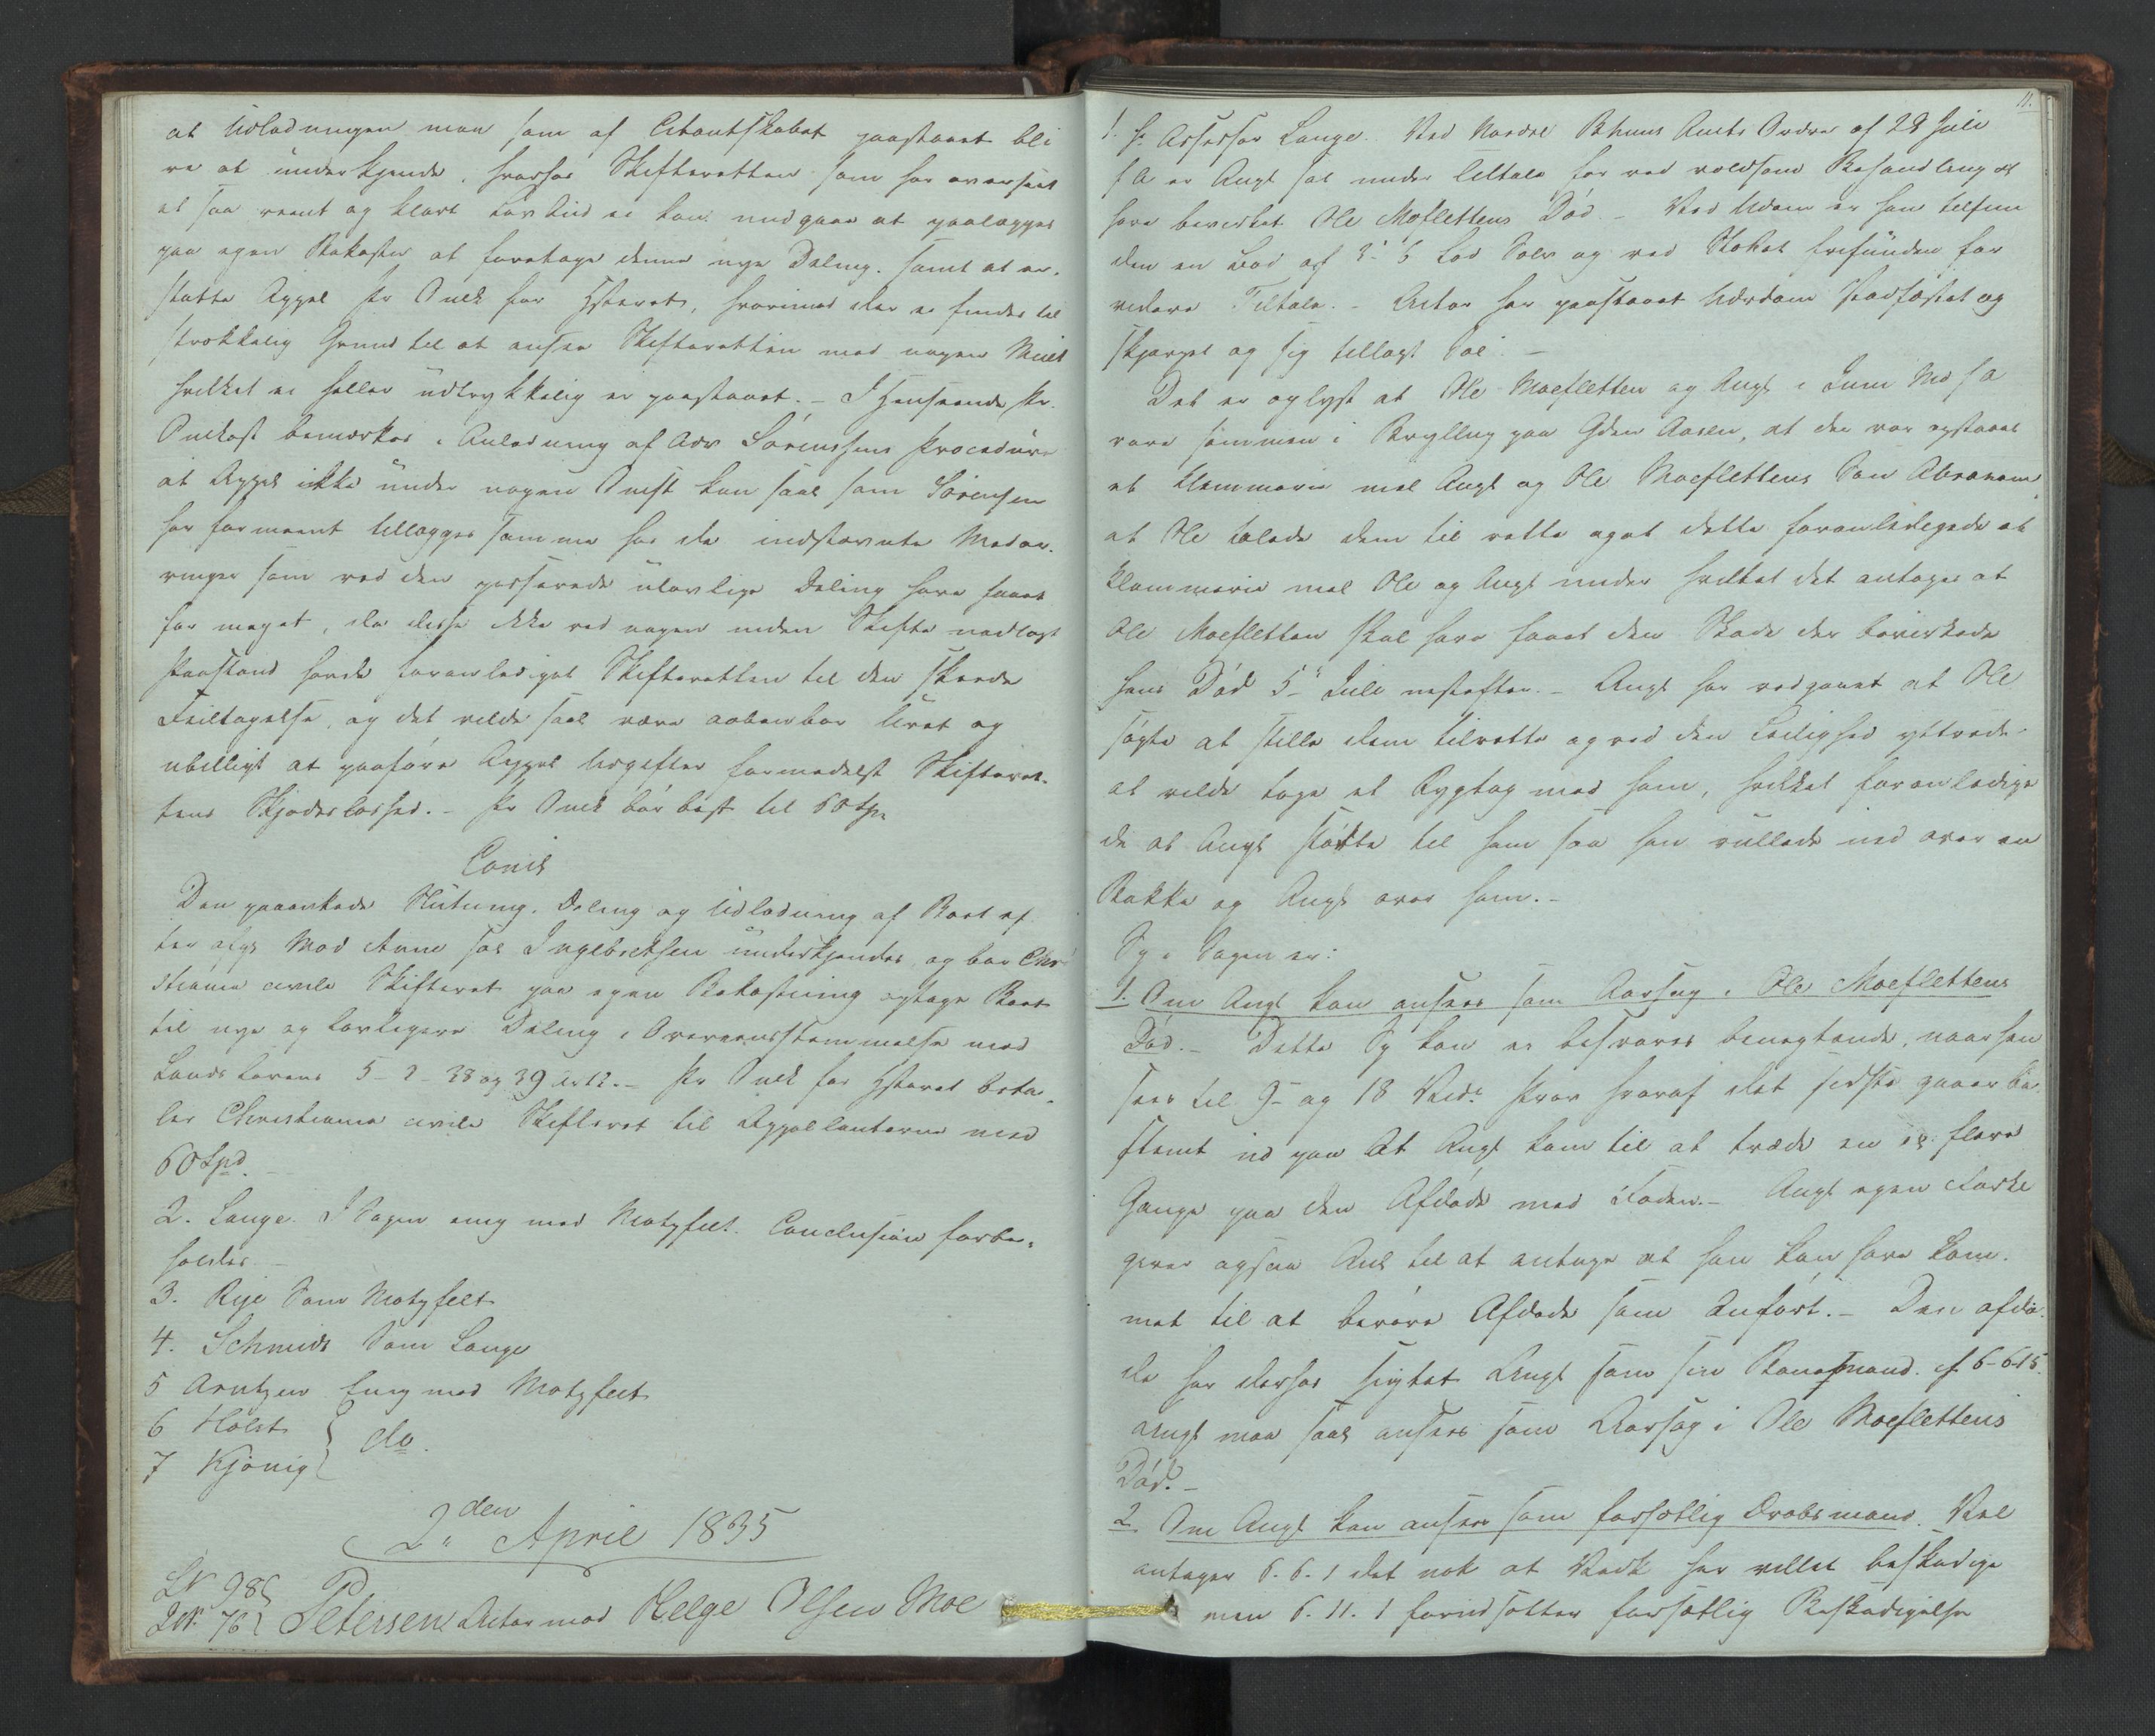 at Udlodningen maa som af Citantskabet paastaaet bli
ve at underkjende, hvorhos Skifteretten som har overseet
et saa reent og klart Lovbud ei kan undgaae at paalægges
paa egen Bekostn at foretage denne nye Deling, samt at er-
statte Appel Pr Omk for Hsteret, hvorimod der ei findes til
strækkelig Grund til at ansee Skifteretten med nogen Mulct
hvilket ei heller udtrykkelig er paastaaet. – I Henseende Pr.
Omkost bemærkes i Anledning af Adv Sørenssens Procedure
at Appel ikke under nogen Omst kan saal som Sørensen
har formeent tillægges samme hos de indstævnte Medar-
vinger som ved den passerede ulovlige Deling have faaet
for meget, da disse ikke ved nogen under Skifte nedlagt
Paastand havde foranlediget Skifteretten til den skeede
Feiltagelse, og det vilde saal være aabenbar Uret og
ubilligt at paaføre Appel Udgifter formedelst Skifteret-
tens Skjødesløshed. – Pr Omk bør best til 60 Spd
Concl
Den paaankede Slutning, Deling og Udlodning af Boet ef-
ter afg Mad Anne sal Ingebretsen underkjendes, og bør Chri
stiania civile Skifteret paa egen Bekostning optage Boet
til nye og lovligere Deling i Overeensstemmelse med
Lands Lovens 5-2-38 og 39 Art. – Pr Omk for Hsteret beta-
ler Christiania civile Skifteret til Appellanterne med
60 Spd. –
2. Lange. I Sagen enig med Motzfelt. Conclusion forbe-
holdes. –
3. Rye Som Motzfelt
4. Schmidt Som Lange
5 Arntzen Enig med Motzfelt
6 Holst } do.
7 Kjønig
2den April 1835
LN 98
JN 76 } Petersen Actor mod Helge Olsen Moe
11.
1. Hr Assessor Lange. Ved Nordre Bhuus Amts Ordre af 28 Juli
f A er Angl sat under Tiltale for ved voldsom Behandling at
have bevirket Ole Moeflettens Død. – Ved Udom er han tilfun
den en Bod af 3- 6 Lod Sølv og ved Stiftet frifunden for
videre Tiltale. – Actor har paastaaet Udsdom stadfæstet og
skjærpet og sig tillagt Sal. –
Det er oplyst at Ole Moefletten og Angl i Juni Md f A
vare sammen i Bryllup paa Gden Aasen, at der var opstaaet
et Klammerie mel Angl og Ole Moeflettens Søn Abraham,
at Ole talede dem til rette og at dette foranledigede et
Klammerie mel Ole og Angl under hvilket det antages at
Ole Moefletten skal have faaet den Skade der bevirkede
hans Død 5te Juli næstefter. – Angl har vedgaaet at Ole
søgte at stille dem tilrette og ved den Leilighed yttrede
at vilde tage et Rygtag med ham, hvilket foranledige
de at Angl stødte til ham saa han rullede ned over en
Bakke og Angl over ham. –
Sp i Sagen er:
1. Om Angl kan ansees som Aarsag i Ole Moeflettens
Død. – Dette Sp kan ei besvares benegtende, naar hen
sees til 9- og 18 Vid. Prov hvoraf det sidste gaaer be-
stemt ud paa at Angl kom til at træde en el. flere
Gange paa den Afdøde med Foden. – Angl egen Forkl
giver ogsaa Anl til at antage at han kan have kom-
met til at berøre Afdøde som anført. – Den afdø-
de har derhos sigtet Angl som sin Banemand. cf 6-6-15.
Angl maa saal ansees som Aarsag i Ole Moeflettens
Død. –
2. Om Angl kan ansees som forsætlig Drabsmand. Vel
antager 6.6.1 det nok at Vedk har villet beskadige
men 6.11.1 forudsætter forsætlig Beskadigelse